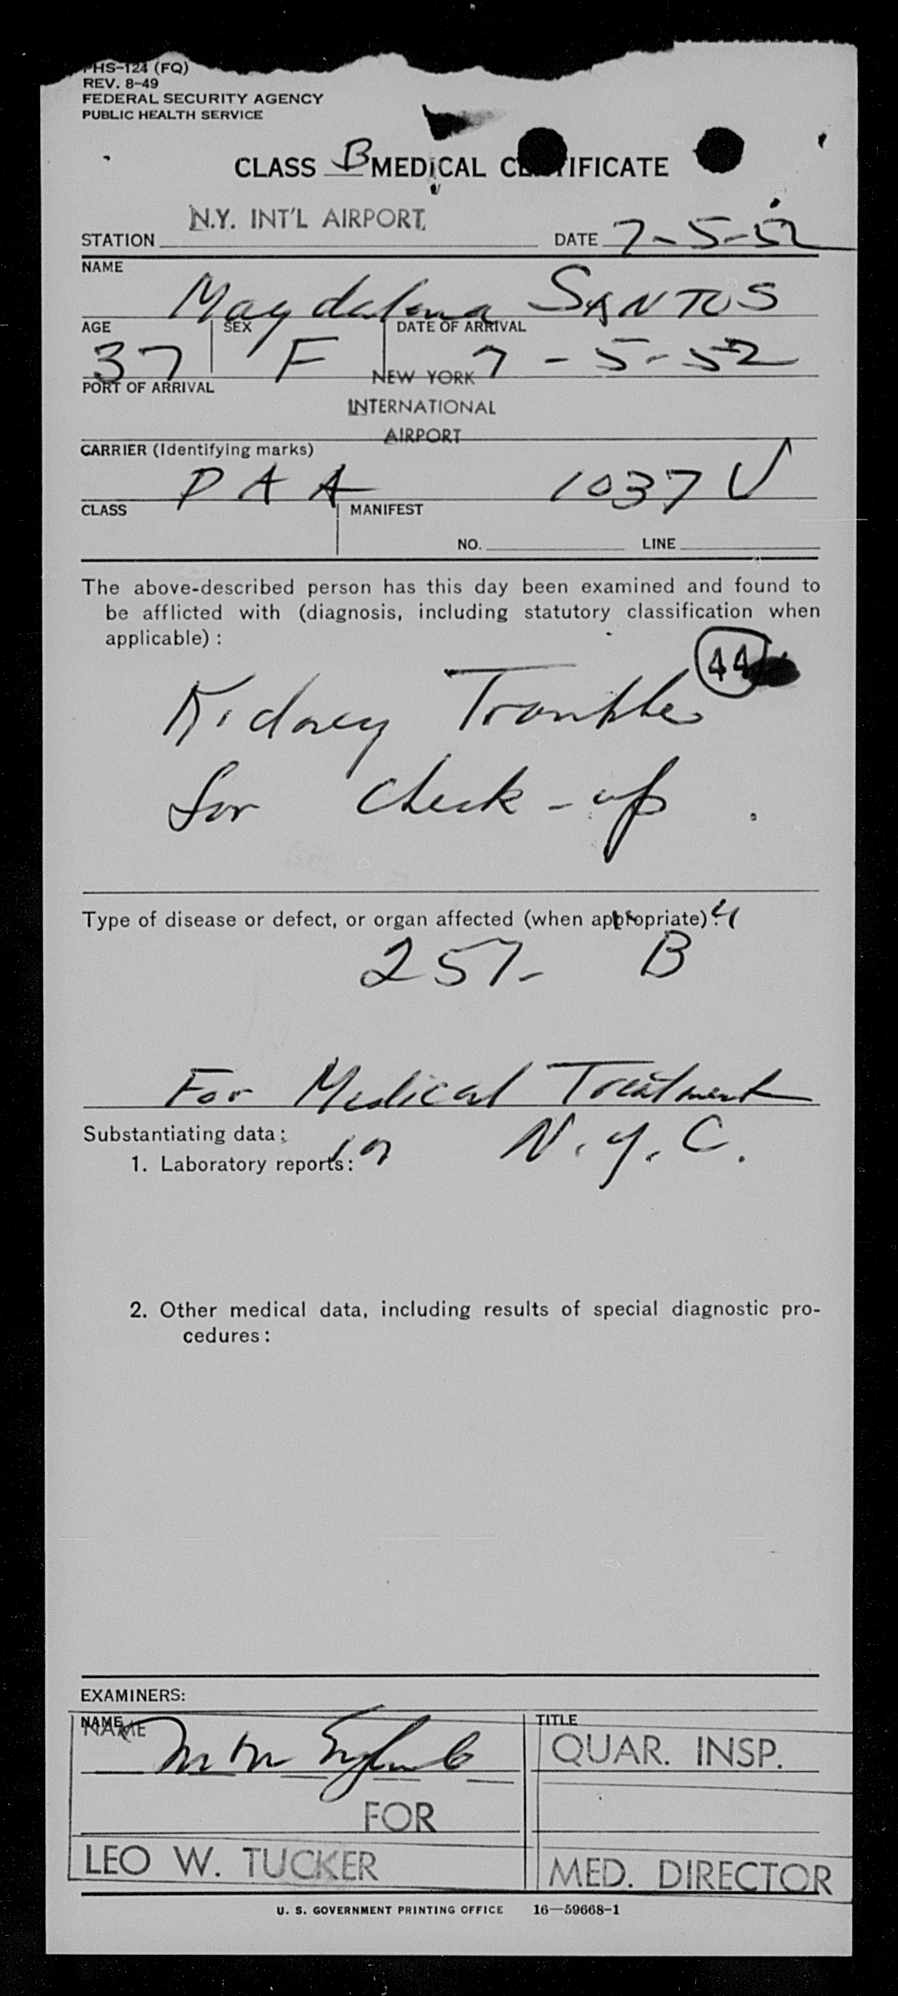 PHS-124 (FQ)
REV. 8-49
FEDERAL SECURITY AGENCY
PUBLIC HEALTH SERVICE
CLASS B MEDICAL CERTIFICATE
STATION N.Y. INT'L AIRPORT DATE 7-5-52
NAME
Magdalena SANTOS
AGE SEX DATE OF ARRIVAL
37 F 7-5-52
PORT OF ARRIVAL NEW YORK
INTERNATIONAL
AIRPORT
CARRIER (Identifying marks)
PAA 1037 V
CLASS MANIFEST
NO. LINE
The above-described person has this day been examined and found to
be afflicted with (diagnosis, including statutory classification when
applicable):
44
Kidney Trouble
for check-up.
Type of disease or defect, or organ affected (when appropriate):
257- B
For Medical Treatment
Substantiating data:
in N.Y.C.
1. Laboratory reports:
2. Other medical data, including results of special diagnostic pro-
cedures:
EXAMINERS:
NAME TITLE
NAME
QUAR. INSP.
FOR
LEO W. TUCKER MED. DIRECTOR
U. S. GOVERNMENT PRINTING OFFICE 16—59668-1